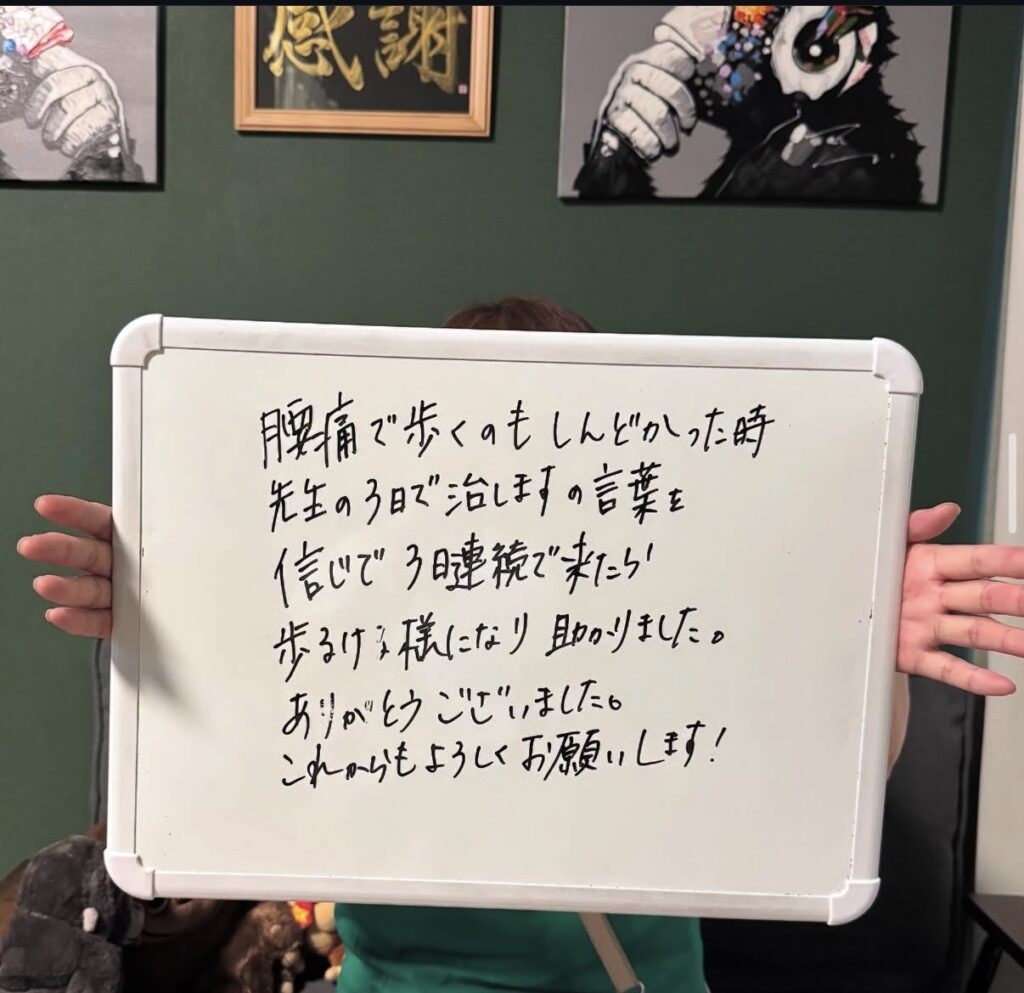 感謝
腰痛で歩くのもしんどかった時
先生の3日で治しますの言葉を
信じで3日連続で来たら
歩るける様になり助かりました。
ありがとうございました。
これからもよろしくお願いします!